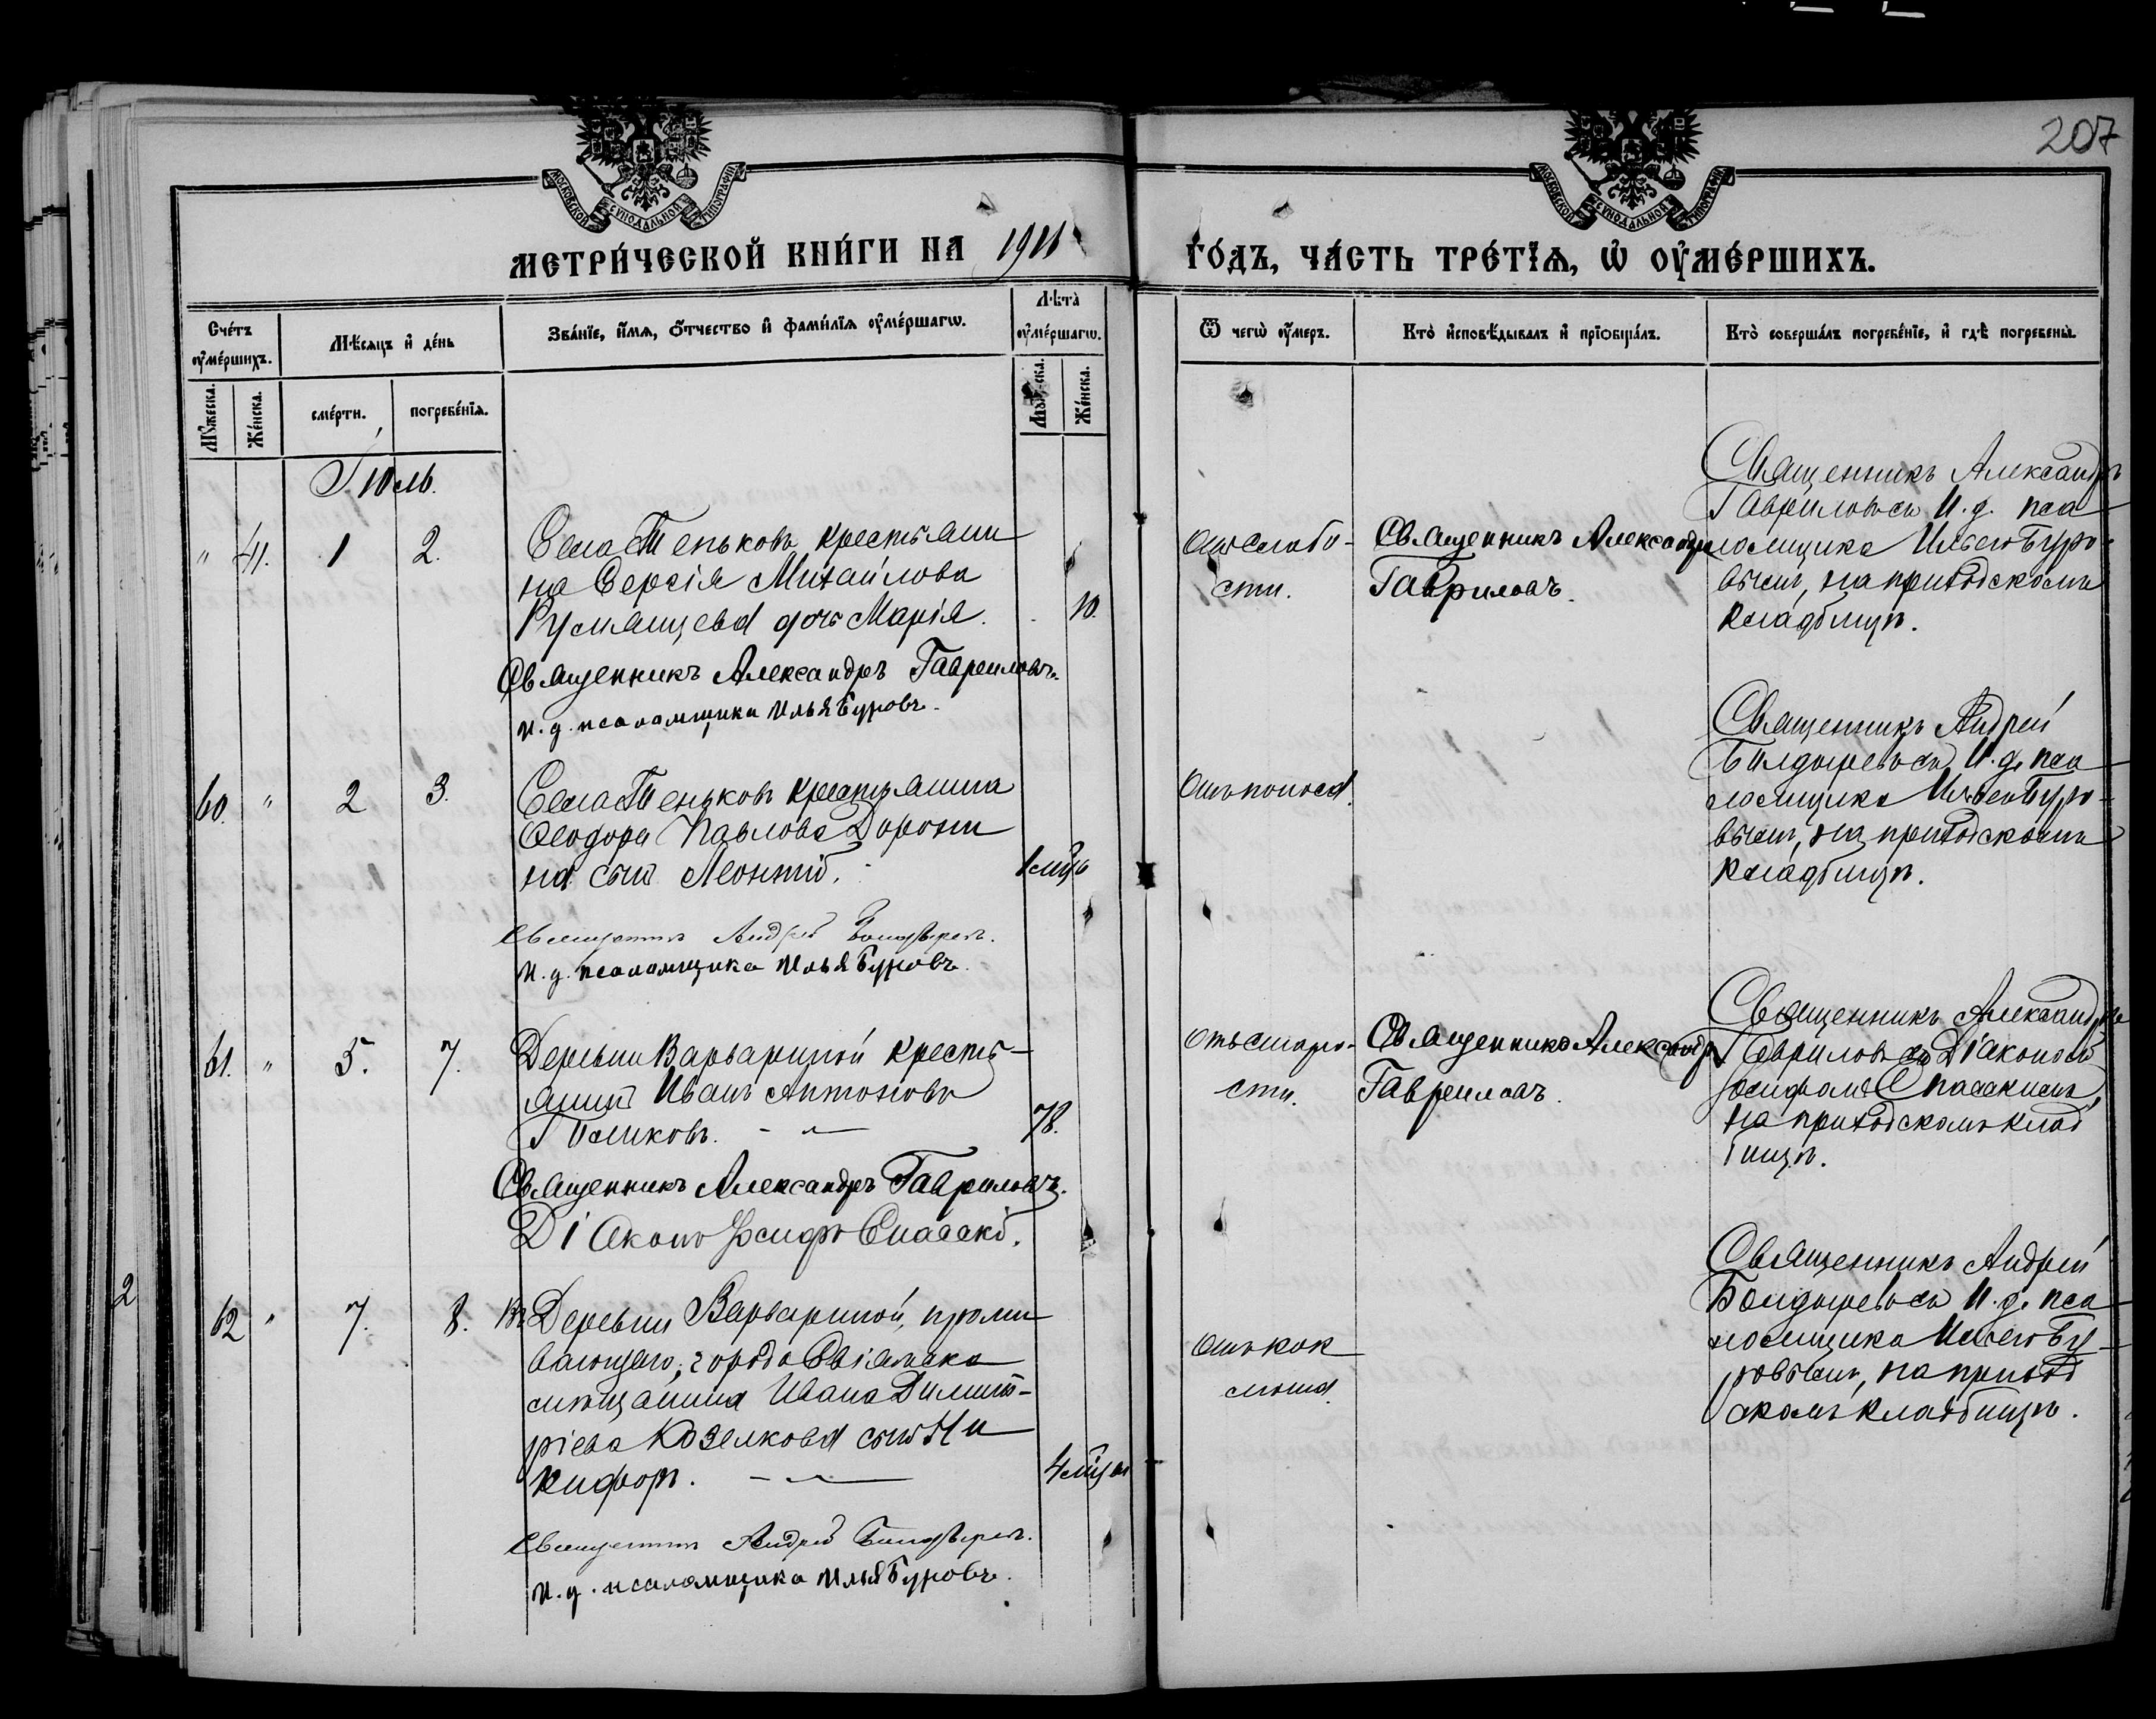 207
МОСКОВСКОЙ СѴНОДАЛЬНОЙ ТИПОГРАФІИ
МОСКОВСКОЙ СѴНОДАЛЬНОЙ ТИПОГРАФІИ
МЕТРИ́ЧЕСКОЙ КНИ́ГИ НА 1911 ГО́ДЪ, ЧА́СТЬ ТРЕ́ТІѦ, Ѡ ОУ҆МЕ́РШИХЪ.
Сче́тъ оу҆ме́ршихъ.
Мѣ́сяцъ и҆ де́нь
Зва́нїе, и҆́мѧ, ѻ҆́тчество и҆ фами́лїѧ оу҆ме́ршагѡ.
Лѣта̀ оу҆ме́ршагѡ.
Ѿ чегѡ̀ оу҆́меръ.
Кто̀ и҆сповѣ́дывалъ и҆ прїѡбща́лъ.
Кто̀ соверша́лъ погребе́нїе, и҆ гдѣ̀ погребены̀.
Мꙋ́жеска.
Же́нска.
сме́рти.
погребе́нїѧ.
Мꙋ́жеска.
Же́нска.
Іюль.
" 41. 1 2.
Села Теньковъ крестьяни
на Сергія Михайлова
Румянцева дочь Марія. 10.
Священникъ Александръ Гавриловъ.
и. д. псаломщика Илья Буровъ.
Отъ слабо-
сти.
Священникъ Александръ
Гавриловъ.
Священникъ Александръ
Гавриловъ съ И. д. пса
ломщика Ильею Буро-
вымъ, на приходскомъ
кладбищѣ.
60. " 2 3.
Села Теньковъ крестьянина
Ѳеодора Павлова Дорони
на сынъ Леонтій. 1 мѣс
Священникъ Андрей Болдыревъ.
и. д. псаломщика Илья Буровъ.
Отъ поноса.
Священникъ Андрей
Болдыревъ съ И. д. пса
ломщика Ильею Буро-
вымъ, на приходскомъ
кладбищѣ.
61. " 5. 7.
Деревни Варвариной кресть-
янинъ Иванъ Антоновъ
Поликовъ. 78.
Священникъ Александръ Гавриловъ.
Діаконъ Іосифъ Спасскій.
Отъ старо-
сти.
Священникъ Александръ
Гавриловъ.
Священникъ Александръ
Гавриловъ съ Діакономъ
Іосифомъ Спасскимъ,
на приходскомъ клад
бищѣ.
2
62 " 7. 8.
Въ Деревни Варвариной, прожи
вающаго, города Свіяжска
мѣщанина Ивана Димит-
ріева Козелкова сынъ Ни
кифоръ. 4 мѣс
Священникъ Андрей Болдыревъ.
и. д. псаломщика Илья Буровъ.
Отъ кок
люша.
Священникъ Андрей
Болдыревъ съ И. д. пса
ломщика Ильею Бу-
ровымъ, на приход
скомъ кладбищѣ.